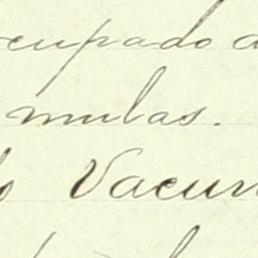 cupado d
mulas.
lo Vacun